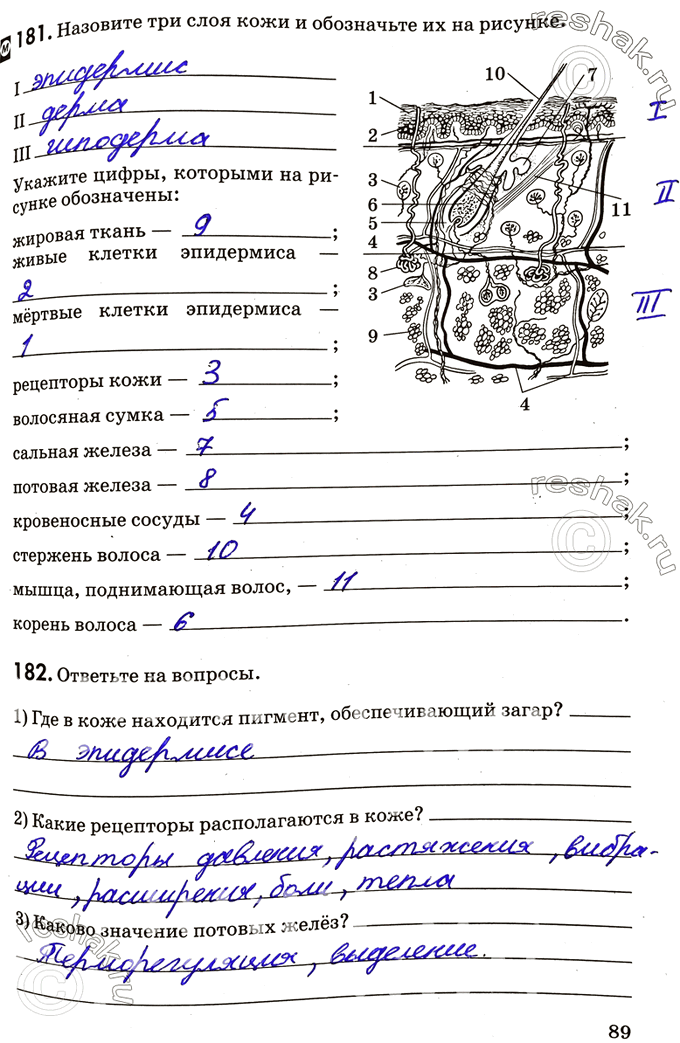 181. Назовите три слоя кожи и обозначьте их на рисунке.
I эпидермис
II дерма
III гиподерма
Укажите цифры, которыми на ри-
сунке обозначены:
жировая ткань — 9 ;
живые клетки эпидермиса —
2 ;
мёртвые клетки эпидермиса —
1 ;
рецепторы кожи — 3 ;
волосяная сумка — 5 ;
сальная железа — 7 ;
потовая железа — 8 ;
кровеносные сосуды — 4 ;
стержень волоса — 10 ;
мышца, поднимающая волос, — 11 ;
корень волоса — 6 .
10 7
1
2
3
6
5
4
8
3
9
11
4
I
II
III
182. Ответьте на вопросы.
1) Где в коже находится пигмент, обеспечивающий загар?
В эпидермисе
2) Какие рецепторы располагаются в коже?
Рецепторы давления, растяжения, вибра-
ции, расширения, боли, тепла
3) Каково значение потовых желёз?
Терморегуляция, выделение.
89
reshak.ru
reshak.ru
reshak.ru